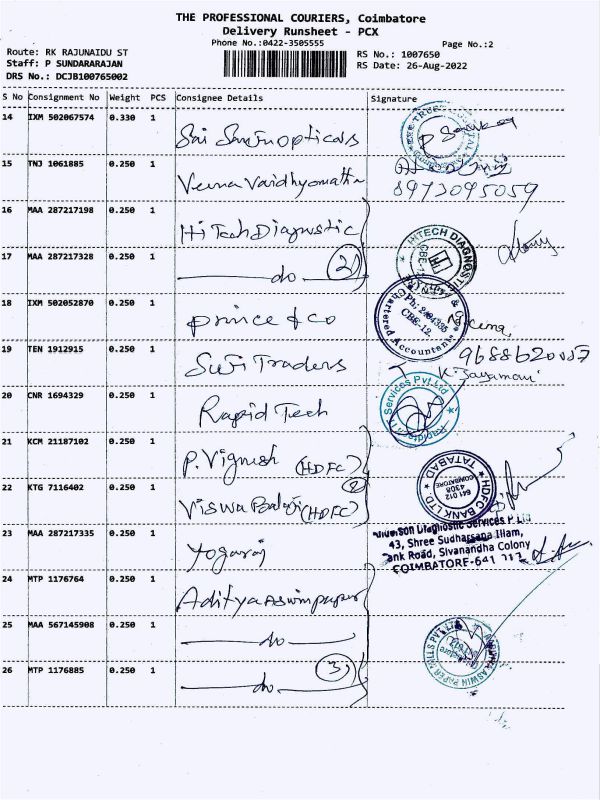 THE PROFESSIONAL COURIERS, Coimbatore
Delivery Runsheet - PCX
Phone No.:0422-3505555
Page No.:2
Route: RK RAJUNAIDU ST
Staff: P SUNDARARAJAN
DRS No.: DCJB100765002
RS No.: 1007650
RS Date: 26-Aug-2022
S No Consignment No Weight PCS Consignee Details Signature
14 IXM 502067574 0.330 1
Opticals
15 TNJ 1061885 0.250 1
8973095059
16 MAA 287217198 0.250 1
Hi Tech Diagnostic
HITECH DIAGNOSTIC
17 MAA 287217328 0.250 1
do 2
18 IXM 502052870 0.250 1
Prince & co
Chartered Accountants
CBE-12
19 TEN 1912915 0.250 1
Sufi Traders
20 CNR 1694329 0.250 1
Rapid Tech
Services Pvt Ltd
21 KCM 21187102 0.250 1
P. Vignesh (HDFC)
HDFC BANK LTD.
TATABAD
COIMBATORE
641 012
4308
22 KTG 7116402 0.250 1
Viswa Balaji (HDFC)
2
23 MAA 287217335 0.250 1
Yogaraj
Diagnostic Services P Ltd
43, Shree Sudharsana Illam,
ank Road, Sivanandha Colony
COIMBATORE-641
24 MTP 1176764 0.250 1
Aditya Aswin paper
25 MAA 567145908 0.250 1
do
ASWIN PAPER MILLS PVT LTD
26 MTP 1176885 0.250 1
do 3